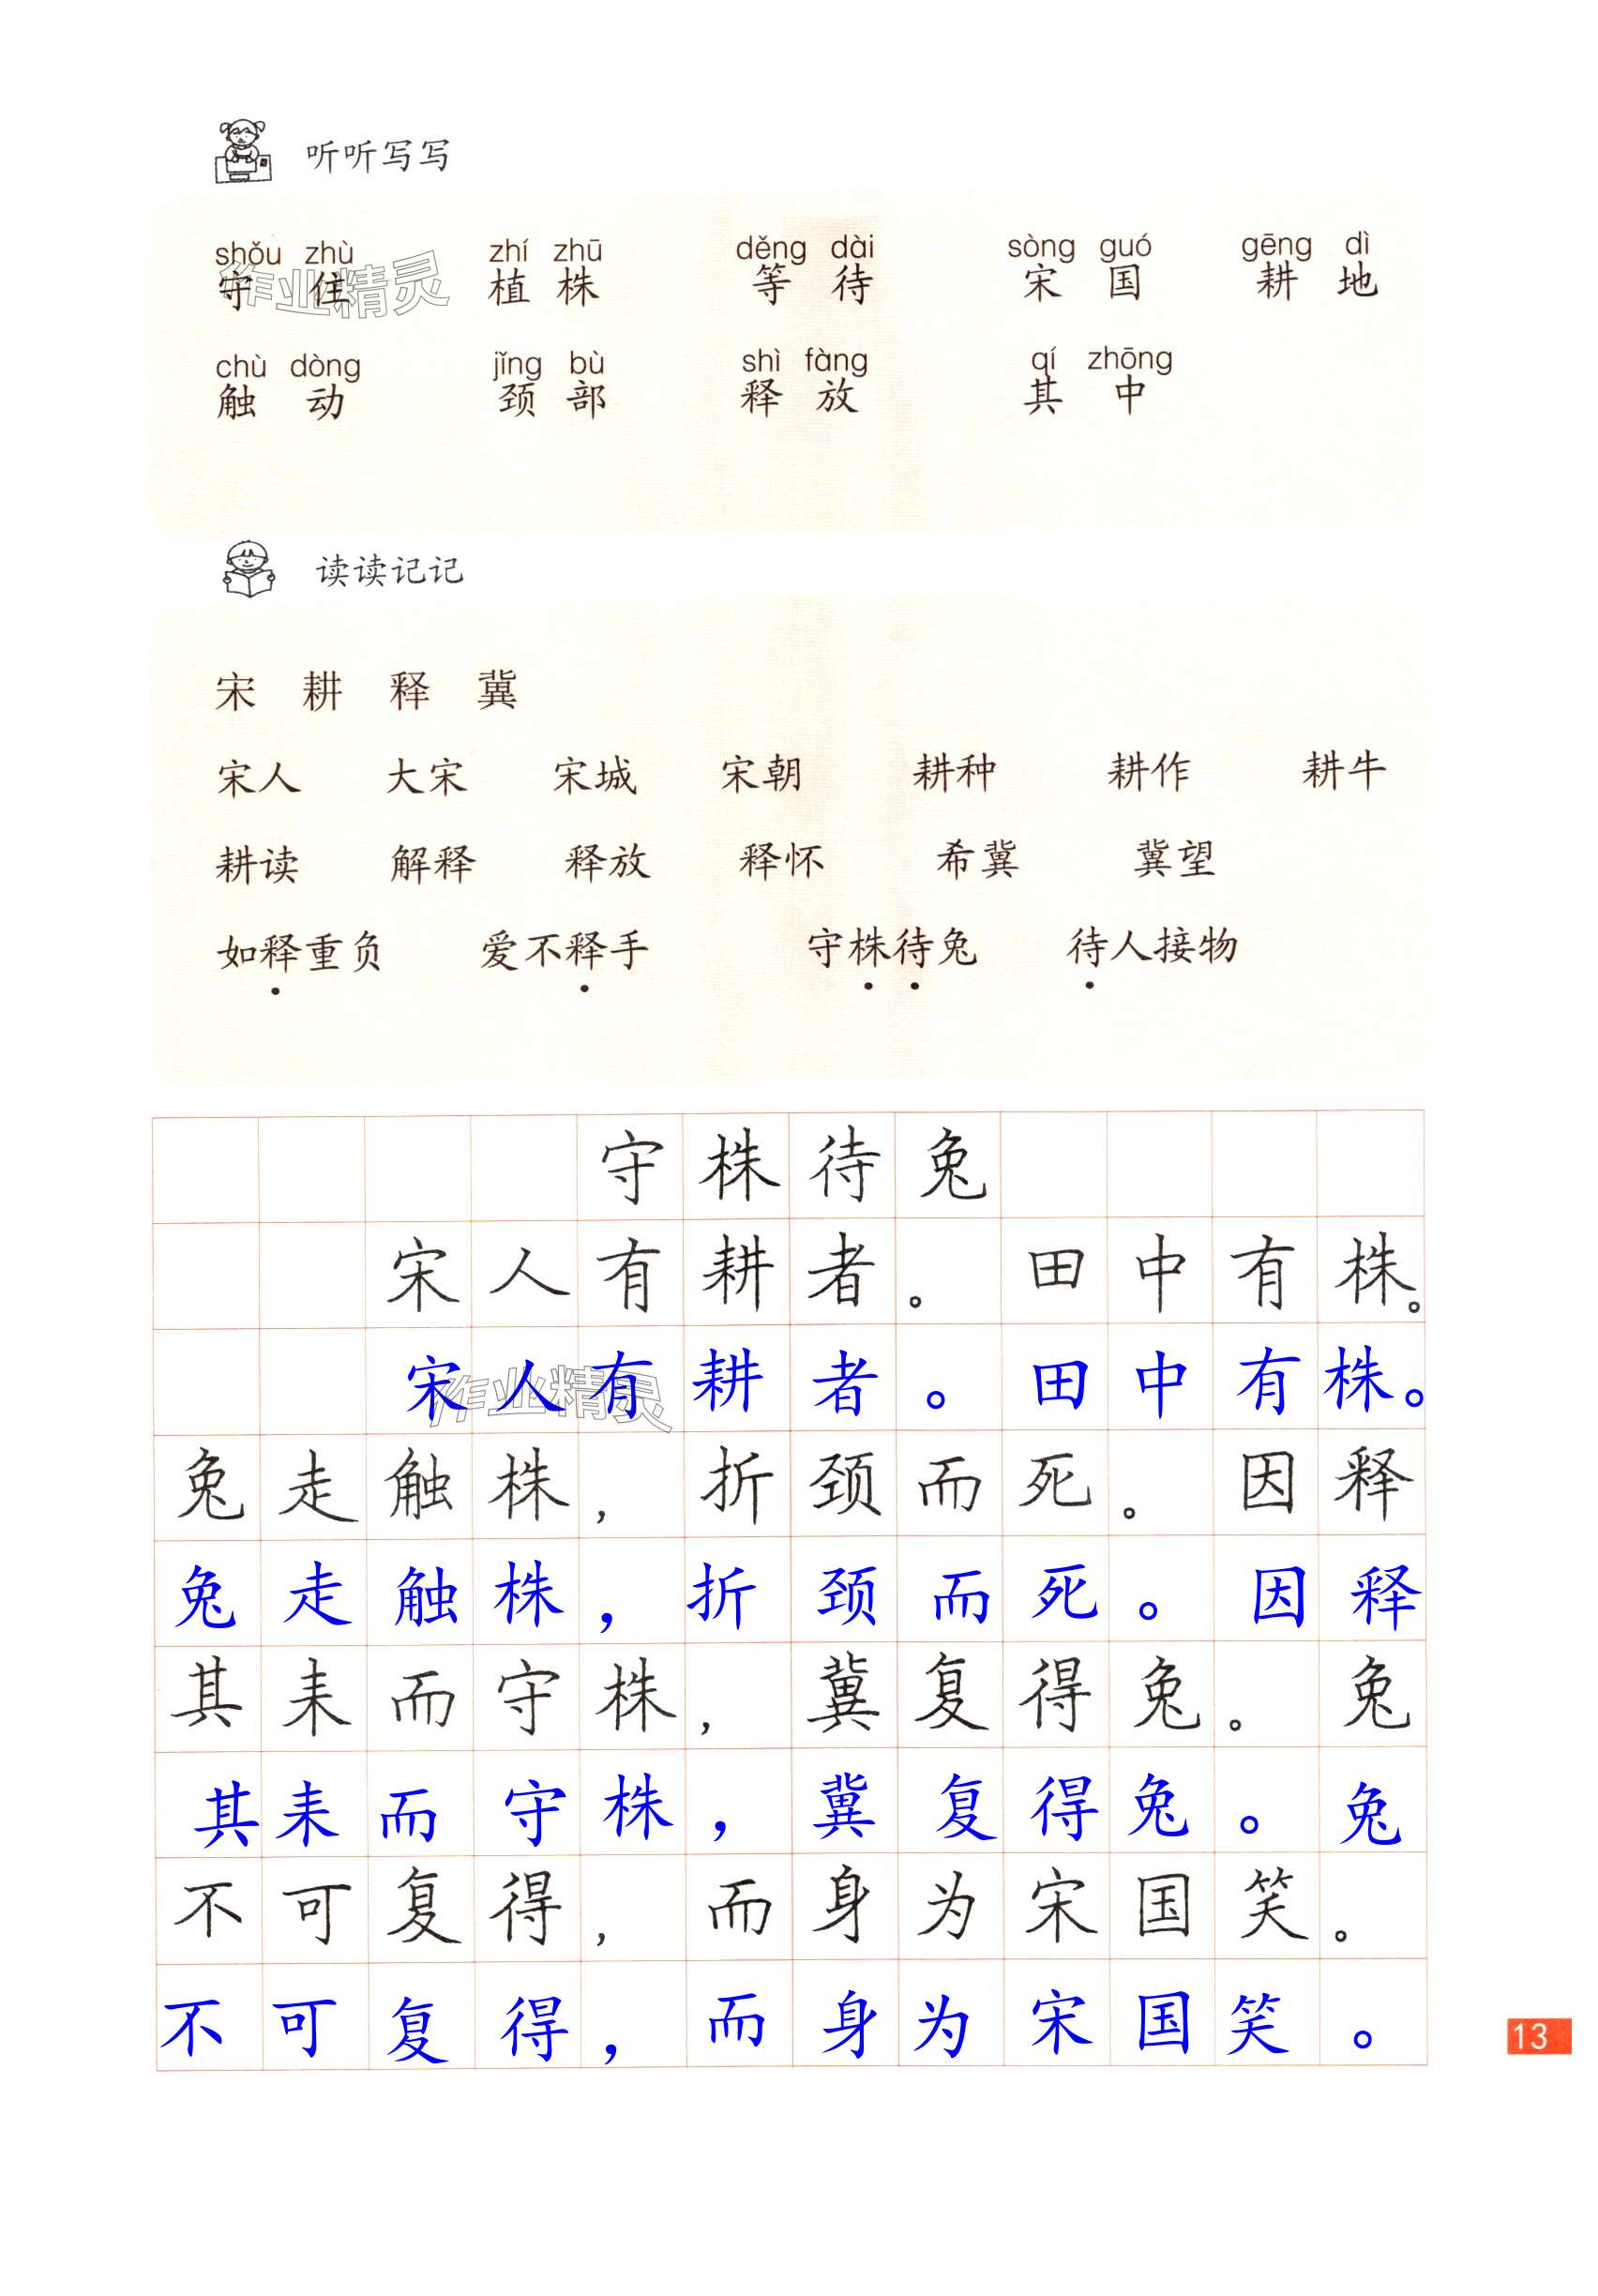 听听写写
shǒu zhù zhí zhū děng dài sòng guó gēng dì
守住 植株 等待 宋国 耕地
chù dòng jǐng bù shì fàng qí zhōng
触动 颈部 释放 其中
读读记记
宋 耕 释 冀
宋人 大宋 宋城 宋朝 耕种 耕作 耕牛
耕读 解释 释放 释怀 希冀 冀望
如释重负 爱不释手 守株待兔 待人接物
守株待兔
宋人有耕者。田中有株。
宋人有耕者。田中有株。
兔走触株，折颈而死。因释
兔走触株，折颈而死。因释
其耒而守株，冀复得兔。兔
其耒而守株，冀复得兔。兔
不可复得，而身为宋国笑。
不可复得，而身为宋国笑。
13
作业精灵
作业精灵